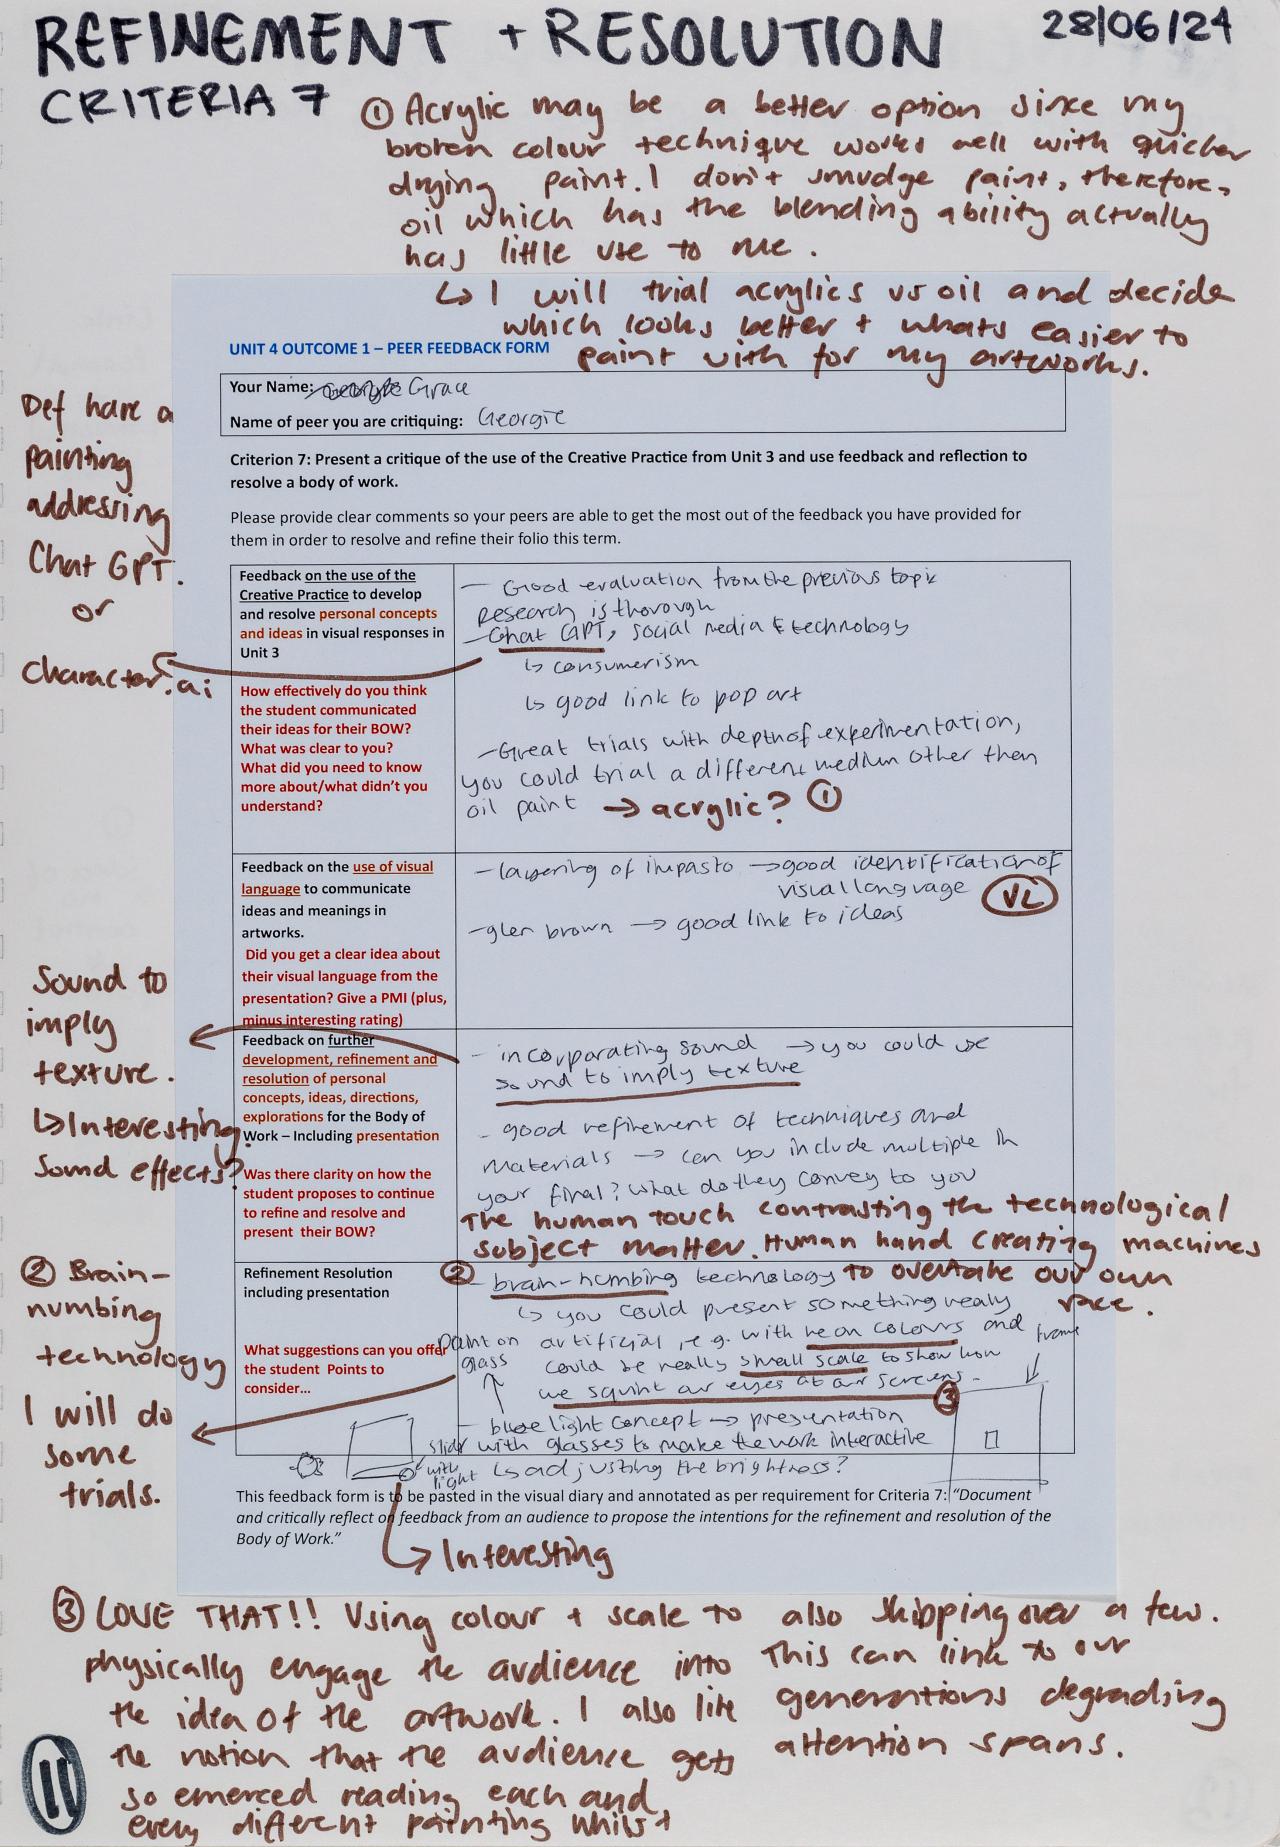 REFINEMENT + RESOLUTION
28/06/24
CRITERIA 7
① Acrylic may be a better option since my
broken colour technique works well with quicker
drying paint. I don't smudge paint, therefore,
oil which has the blending ability actually
has little use to me.
↳ I will trial acrylics vs oil and decide
which looks better + whats easier to
paint with for my artworks.
UNIT 4 OUTCOME 1 – PEER FEEDBACK FORM
Your Name: Grace
Name of peer you are critiquing: Georgie
Criterion 7: Present a critique of the use of the Creative Practice from Unit 3 and use feedback and reflection to
resolve a body of work.
Please provide clear comments so your peers are able to get the most out of the feedback you have provided for
them in order to resolve and refine their folio this term.
Def have a
painting
addressing
Chat GPT.
or
character.ai
Feedback on the use of the
Creative Practice to develop
and resolve personal concepts
and ideas in visual responses in
Unit 3
How effectively do you think
the student communicated
their ideas for their BOW?
What was clear to you?
What did you need to know
more about/what didn't you
understand?
– Good evaluation from the previous topic
research is thorough
– Chat GPT, social media & technology
↳ consumerism
↳ good link to pop art
– Great trials with depth of experimentation,
you could trial a different medium other then
oil paint → acrylic? ①
Feedback on the use of visual
language to communicate
ideas and meanings in
artworks.
Did you get a clear idea about
their visual language from the
presentation? Give a PMI (plus,
minus interesting rating)
– layering of impasto → good identification of
visual language VL
– glen brown → good link to ideas
Sound to
imply
texture.
↳ Interesting
sound effects?
Feedback on further
development, refinement and
resolution of personal
concepts, ideas, directions,
explorations for the Body of
Work – Including presentation
Was there clarity on how the
student proposes to continue
to refine and resolve and
present their BOW?
– incorparating sound → you could use
sound to imply texture
– good refinement of techniques and
materials → can you include multiple in
your final? What do they convey to you
The human touch contrasting the technological
subject matter. Human hand creating machines
to overtake our own
race.
② Brain-
numbing
technology
I will do
some
trials.
Refinement Resolution
including presentation
What suggestions can you offer
the student Points to
consider...
② – brain-numbing technology
↳ you could present something really
artificial, e.g. with neon colours and
could be really small scale to show how
we squint our eyes at our screens. ③
paint on
glass
frame
– blue light concept → presentation
with glasses to make the work interactive
↳ adjusting the brightness?
slider
with
light
This feedback form is to be pasted in the visual diary and annotated as per requirement for Criteria 7: "Document
and critically reflect on feedback from an audience to propose the intentions for the refinement and resolution of the
Body of Work."
↳ Interesting
③ LOVE THAT!! Using colour + scale to also
physically engage the audience into
the idea of the artwork. I also like
the notion that the audience gets
so emerced reading each and
every different painting whilst
skipping over a few.
This can link to our
generations degrading
attention spans.
11